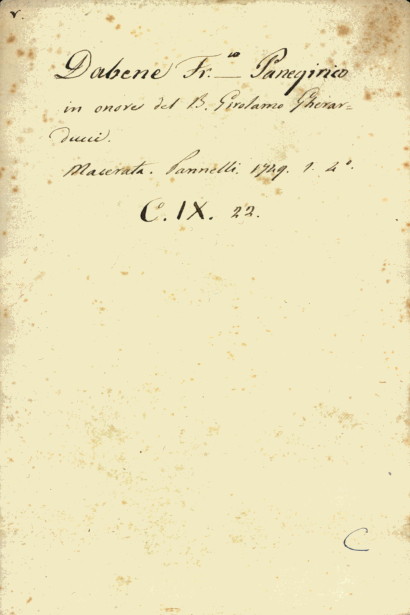 v.
Dabene Fr.co — Panegirico
in onore del B. Girolamo Gherar=
ducci.
Macerata. Pannelli. 1749. 1. 4°.
C. IX. 22.
C